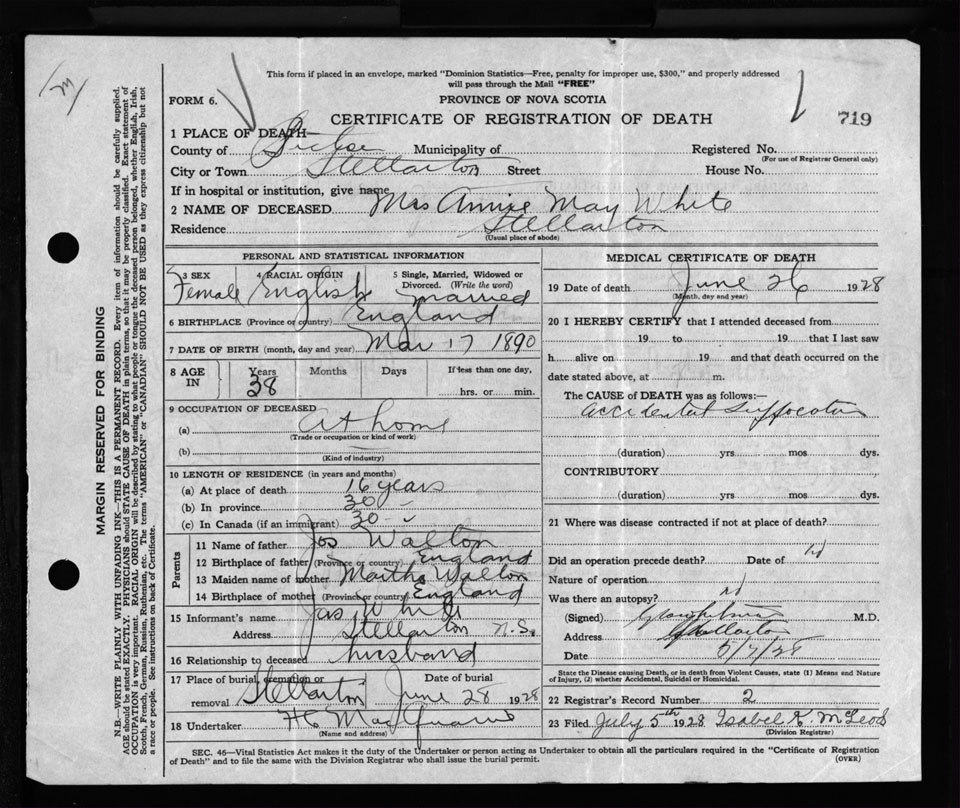 This form if placed in an envelope, marked "Dominion Statistics—Free, penalty for improper use, $300," and properly addressed
will pass through the Mail "FREE"
FORM 6.
PROVINCE OF NOVA SCOTIA
CERTIFICATE OF REGISTRATION OF DEATH
719
1 PLACE OF DEATH—
County of Pictou Municipality of Registered No.
(For use of Registrar General only)
City or Town Stellarton Street House No.
If in hospital or institution, give name
2 NAME OF DECEASED Mrs Annie May White
Residence Stellarton
(Usual place of abode)
PERSONAL AND STATISTICAL INFORMATION
3 SEX 4 RACIAL ORIGIN 5 Single, Married, Widowed or
Divorced. (Write the word)
Female English married
6 BIRTHPLACE (Province or country) England
7 DATE OF BIRTH (month, day and year) Mar 17 1890
8 AGE IN Years Months Days If less than one day,
38 hrs. or min.
9 OCCUPATION OF DECEASED
(a) At home
(Trade or occupation or kind of work)
(b)
(Kind of industry)
10 LENGTH OF RESIDENCE (in years and months)
(a) At place of death 16 years
(b) In province 30
(c) In Canada (if an immigrant) 30
Parents
11 Name of father Jos Walton
12 Birthplace of father (Province or country) England
13 Maiden name of mother Martha Walton
14 Birthplace of mother (Province or country) England
15 Informant's name Jas White
Address Stellarton N.S.
16 Relationship to deceased husband
17 Place of burial, cremation or Date of burial
removal Stellarton June 28 1928
18 Undertaker H C
(Name and address)
MEDICAL CERTIFICATE OF DEATH
19 Date of death June 26 1928
(Month, day and year)
20 I HEREBY CERTIFY that I attended deceased from
19 to 19 that I last saw
h alive on 19 and that death occurred on the
date stated above, at m.
The CAUSE of DEATH was as follows:—
accidental suffocation
(duration) yrs mos dys.
CONTRIBUTORY
(duration) yrs mos dys.
21 Where was disease contracted if not at place of death?
Did an operation precede death? Date of
Nature of operation
Was there an autopsy?
(Signed) M.D.
Address Stellarton
Date 5/7/28
State the Disease causing Death, or in death from Violent Causes, state (1) Means and Nature
of Injury, (2) whether Accidental, Suicidal or Homicidal.
22 Registrar's Record Number 2
23 Filed July 5th 1928 Isabel K. McLeod
(Division Registrar)
SEC. 46—Vital Statistics Act makes it the duty of the Undertaker or person acting as Undertaker to obtain all the particulars required in the "Certificate of Registration
of Death" and to file the same with the Division Registrar who shall issue the burial permit. (OVER)
MARGIN RESERVED FOR BINDING
N.B.—WRITE PLAINLY WITH UNFADING INK—THIS IS A PERMANENT RECORD. Every item of information should be carefully supplied.
AGE should be stated EXACTLY. PHYSICIANS should STATE CAUSE OF DEATH in plain terms, so that it may be properly classified. Exact statement of
OCCUPATION is very important. RACIAL ORIGIN will be described by stating to what people or tongue the deceased person belonged, whether English, Irish,
Scotch, French, German, Russian, Ruthenian, etc. The terms "AMERICAN" or "CANADIAN" SHOULD NOT BE USED as they express citizenship but not
a race or people. See instructions on back of Certificate.